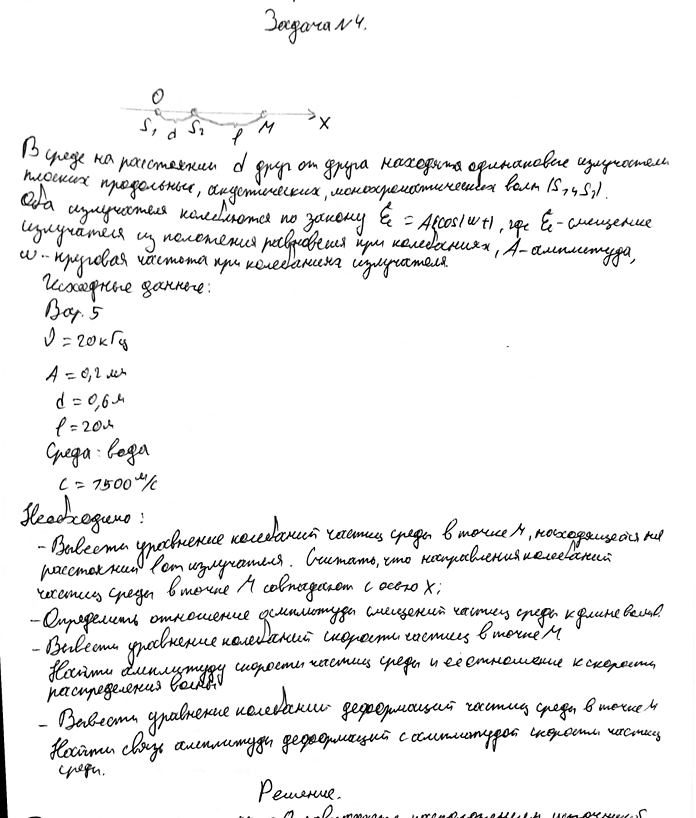 Задача №4.
O
S₁ d S₂ ℓ M X
В среде на расстоянии d друг от друга находятся одинаковые излучатели
плоских продольных, акустических, монохроматических волн (S₁ и S₂).
Оба излучателя колеблются по закону = A cos(ωt), где - смещение
излучателя из положения равновесия при колебаниях, A-амплитуда,
ω - круговая частота при колебаниях излучателя.
Исходные данные:
Вар. 5
ν = 20 кГц
A = 0,2 мм
d = 0,6 м
ℓ = 20м
Среда: вода
c = 1500 м/с
Необходимо:
- Вывести уравнение колебаний частиц среды в точке M, находящейся на
расстоянии ℓ от излучателя. Считать, что направления колебаний
частиц среды в точке M совпадают с осью X;
- Определить отношение амплитуды смещений частиц среды к длине волны.
- Вывести уравнение колебаний скорости частиц в точке M
Найти амплитуду скорости частиц среды и её отношение к скорости
распределения волны
- Вывести уравнение колебаний деформаций частиц среды в точке M
Найти связь амплитуды деформаций с амплитудой скорости частиц
среды.
Решение.